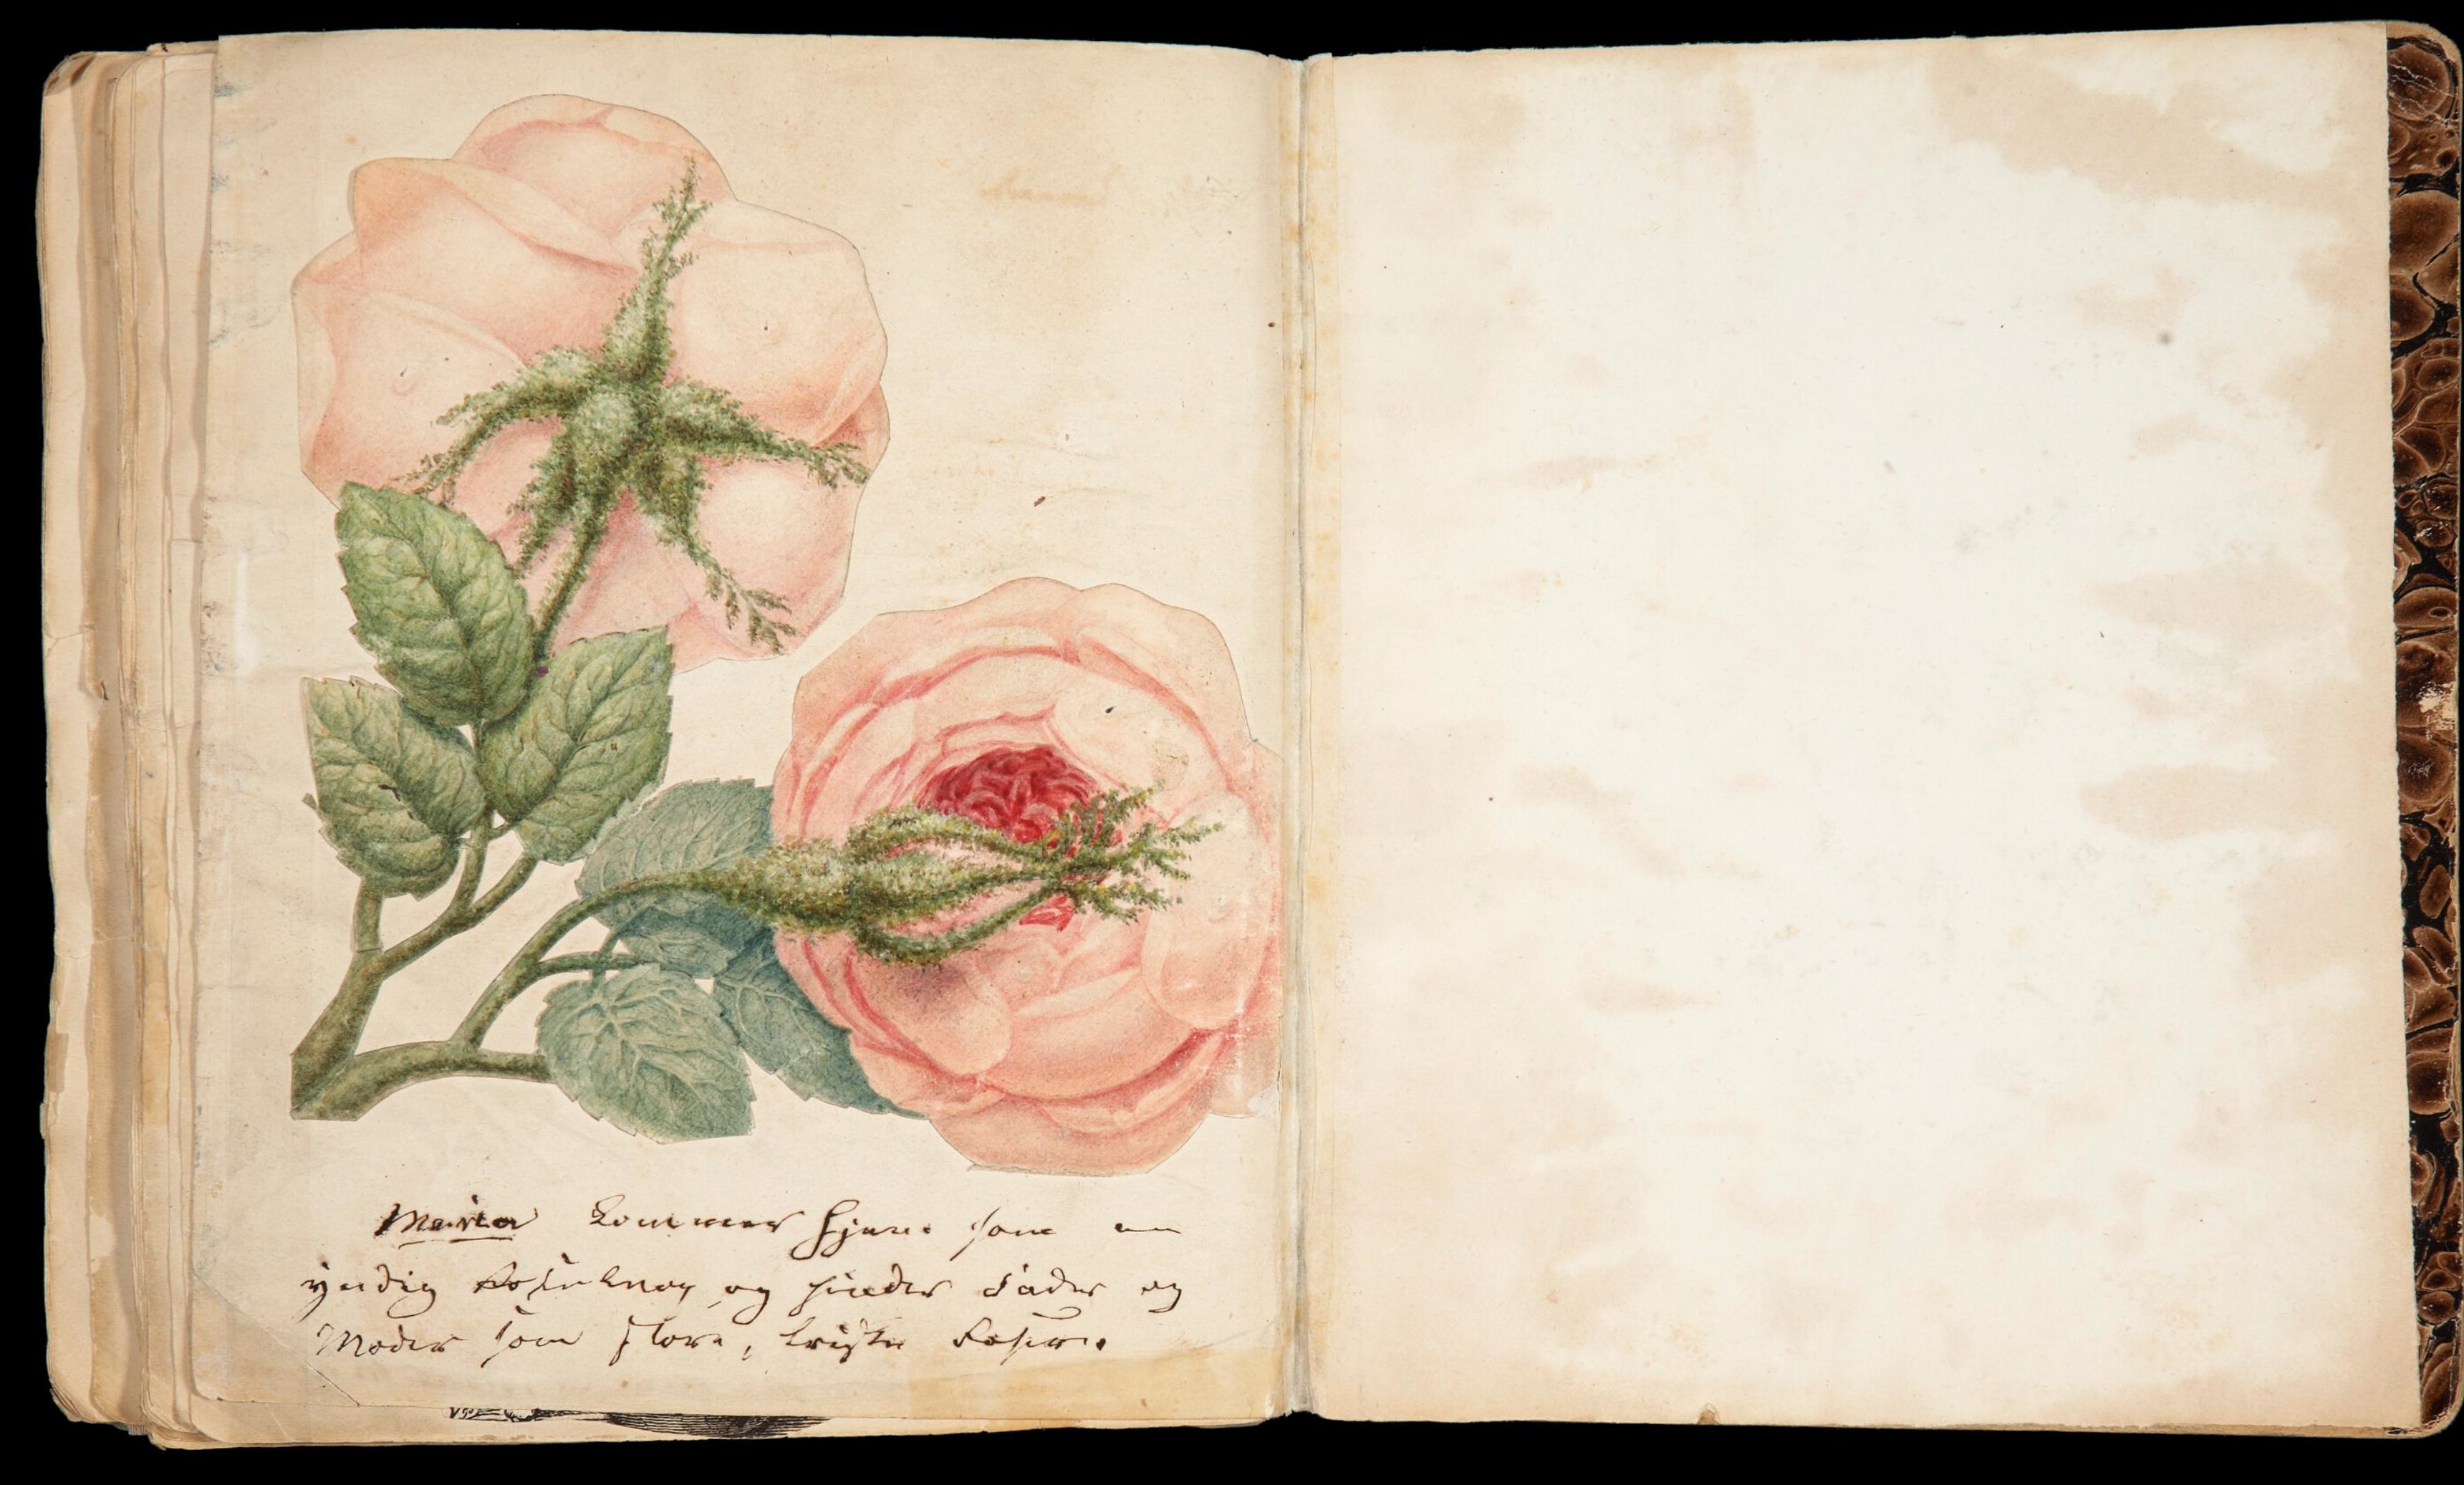 Maria kommer hjem som en
yndig Rosenknop, og finder Fader og
Moder som store, friske Roser.